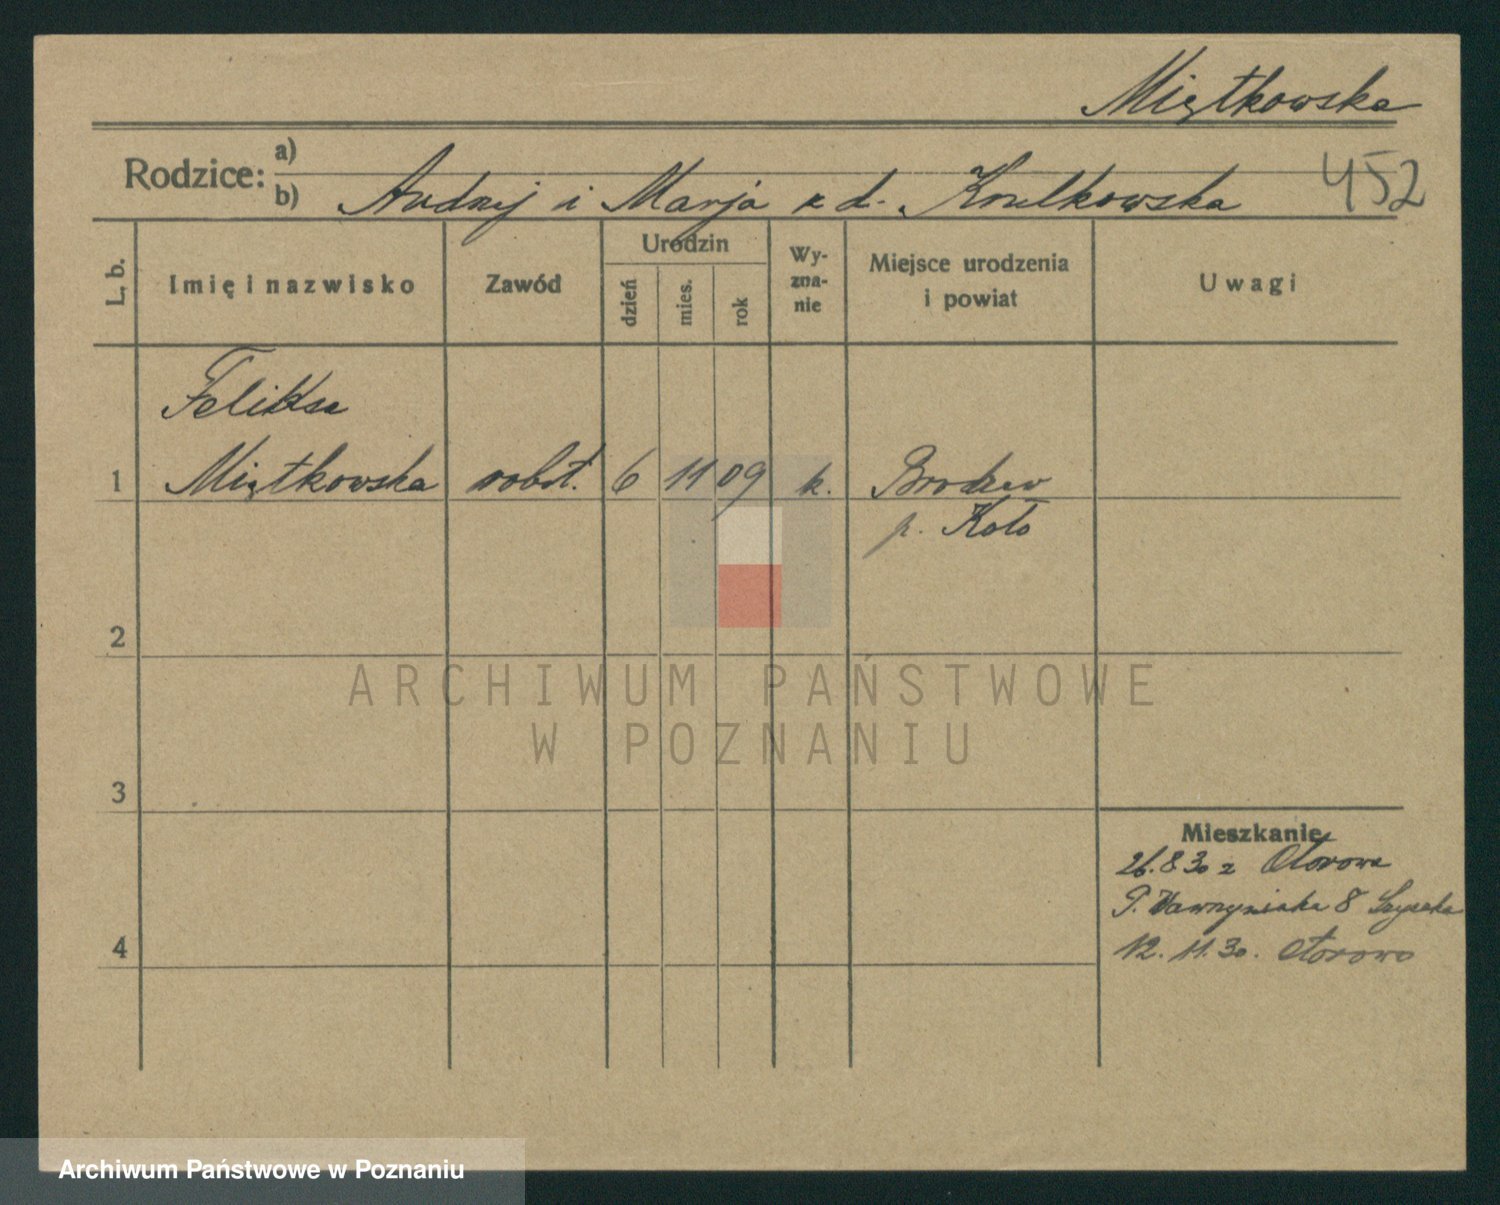 Miętkowska
Rodzice: a)
b) Andrzej i Marja z d. Krulkowska
452
L. b.
Imię i nazwisko
Zawód
Urodzin
dzień
mies.
rok
Wy-
zna-
nie
Miejsce urodzenia
i powiat
Uwagi
Feliksa
1 Miętkowska robot. 6 11 09 k. Brudzew
p. Koło
2
ARCHIWUM PAŃSTWOWE
W POZNANIU
3
Mieszkanie
26.8.30 z Otorowa
P. Wawrzyniaka 8
4
12.11.30. Otorowo
Archiwum Państwowe w Poznaniu